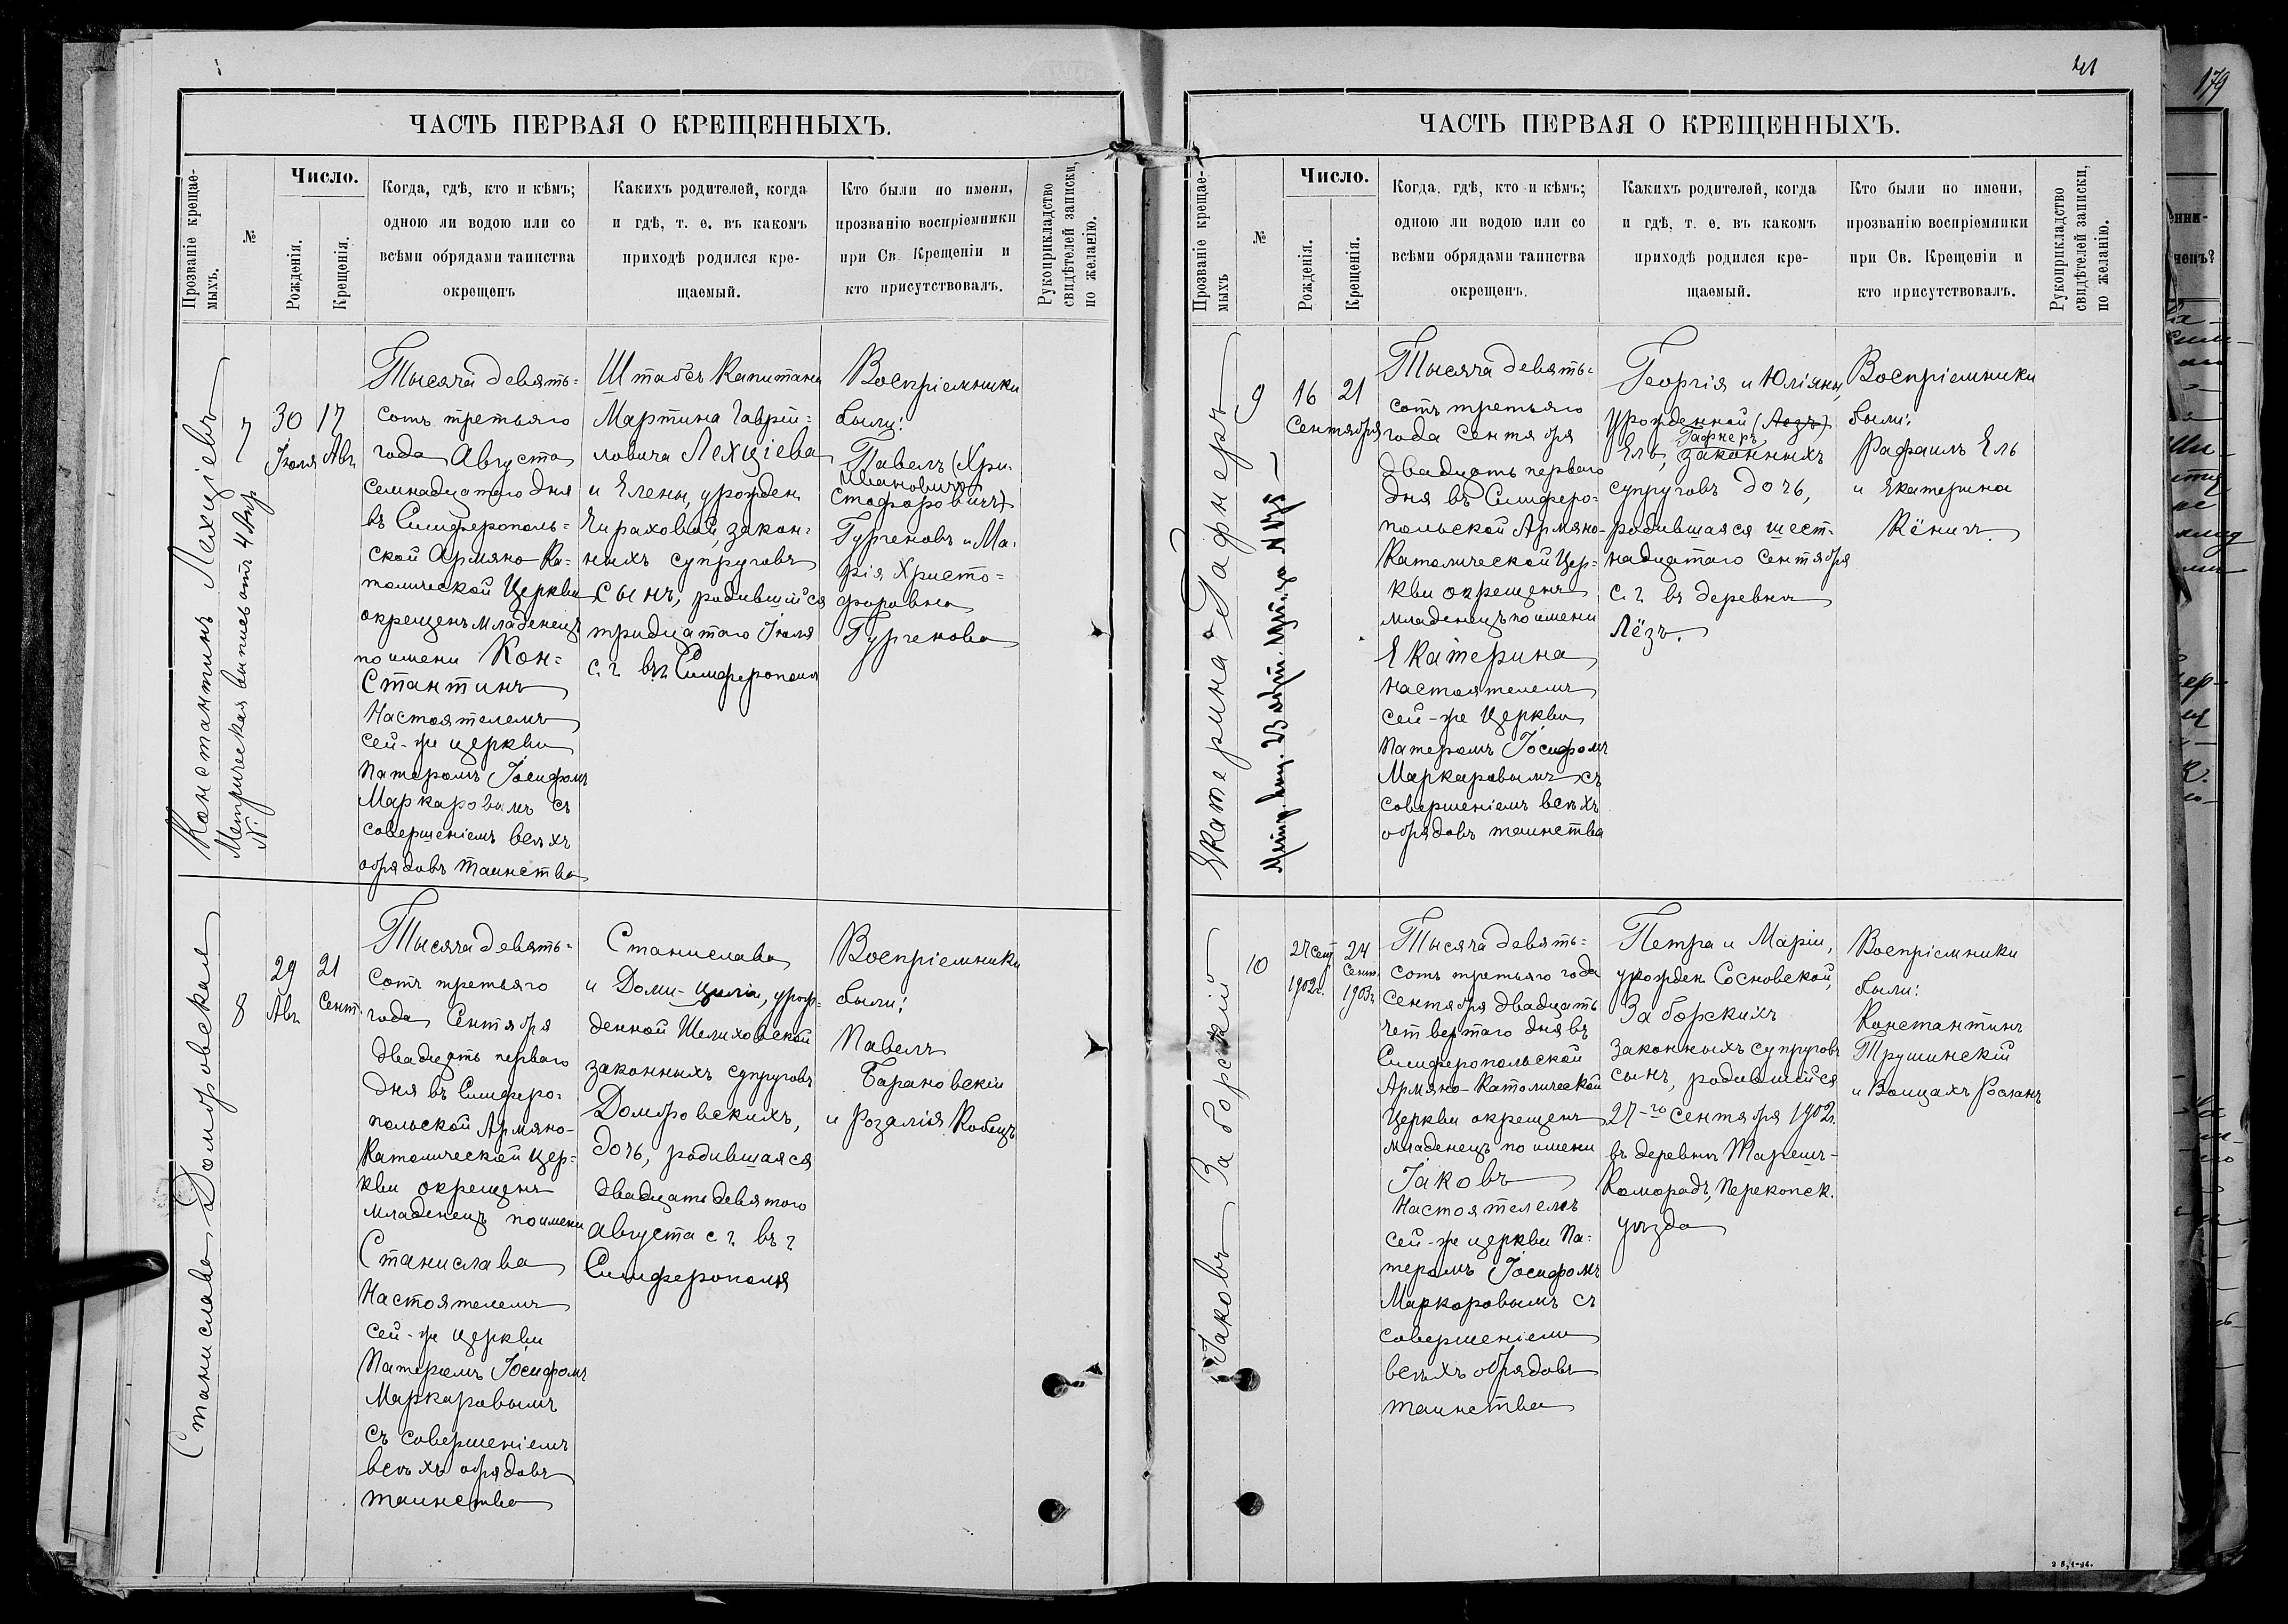 ЧАСТЬ ПЕРВАЯ О КРЕЩЕННЫХЪ.
Прозваніе крещае-
мыхъ.
№
Число.
Рожденія.
Крещенія.
Когда, гдѣ, кто и кѣмъ;
одною ли водою или со
всѣми обрядами таинства
окрещенъ
Какихъ родителей, когда
и гдѣ, т. е. въ какомъ
приходѣ родился кре-
щаемый.
Кто были по имени,
прозванію воспріемники
при Св. Крещеніи и
кто присутствовалъ.
Рукоприкладство
свидѣтелей записки,
по желанію.
Константинъ Лехціевъ
Метрическая выпись отъ 4 Апр
№
7
30
Іюля
17
Авг
Тысяча девять=
сотъ третьяго
года Августа
семнадцатаго дня
въ Симферополь=
ской Армяно-Ка=
толической Церкви
окрещенъ младенецъ
по имени Кон=
стантинъ
Настоятелемъ
сей-же церкви
Патеромъ Іосифомъ
Маркаровымъ съ
совершеніемъ всѣхъ
обрядовъ таинства
Штабсъ Капитана
Мартина Гаврі=
ловича Лехціева
и Елены, урожден
Чираховой, закон=
ныхъ супруговъ
сынъ, родившійся
тридцатаго Іюля
с. г. въ г. Симферополѣ
Воспріемники
были:
Павелъ (Хри=
Ивановичъ
стофоровичъ)
Гургеновъ и Ма=
рія Христо=
форовна
Гургенова
Станислава Домбровская
8
29
Авг
21
Сент.
Тысяча девять=
сотъ третьяго
года Сентября
двадцать перваго
дня въ Симферо=
польской Армяно-
Католической Цер=
кви окрещенъ
младенецъ по имени
Станислава
Настоятелемъ
сей-же церкви
Патеромъ Іосифомъ
Маркаровымъ
съ совершеніемъ
всѣхъ обрядовъ
таинства
Станислава
и Доми-циліи, урож=
денной Шелиховской
законныхъ супруговъ
Домбровскихъ,
дочь, родившаяся
двадцать девятого
Августа с г. въ г
Симферополѣ
Воспріемники
были:
Павелъ
Барановскій
и Розалія Кобецъ
41
ЧАСТЬ ПЕРВАЯ О КРЕЩЕННЫХЪ.
Прозваніе крещае-
мыхъ
№
Число.
Рожденія.
Крещенія.
Когда, гдѣ, кто и кѣмъ;
одною ли водою или со
всѣми обрядами таинства
окрещенъ.
Какихъ родителей, когда
и гдѣ, т. е. въ какомъ
приходѣ родился кре-
щаемый.
Кто были по имени,
прозванію воспріемники
при Св. Крещеніи и
кто присутствовалъ.
Рукоприкладство
свидѣтелей записки,
по желанію.
Екатерина Гафнеръ
9
16
21
Сентября
Тысяча девять=
сотъ третьяго
года Сентября
двадцать перваго
дня въ Симферо=
польской Армяно-
Католической Цер=
кви окрещенъ
младенецъ по имени
Екатерина
Настоятелемъ
сей-же Церкви
Патеромъ Іосифомъ
Маркаровымъ съ
совершеніемъ всѣхъ
обрядовъ таинства
Георгія и Юліяны,
урожденной (Лезъ)
Гафнеръ
Ель, законныхъ
супруговъ дочь,
родившаяся шест=
надцатаго Сентября
с. г въ деревнѣ
Лёзъ.
Воспріемники
были:
Рафаилъ Ель
и Екатерина
Кёнигъ.
Іаковъ Заборскій
10
27 Сент
1902г.
24
Сент.
1903г.
Тысяча девять=
сотъ третьяго года
Сентября двадцать
четвертаго дня въ
Симферопольской
Армяно-Католической
Церкви окрещенъ
младенецъ по имени
Іаковъ
Настоятелемъ
сей-же церкви Па=
теромъ Іосифомъ
Маркаровымъ съ
совершеніемъ
всѣхъ обрядовъ
таинства
Петра и Маріи,
урожден Сосновской,
Заборскихъ
законныхъ супруговъ
сынъ, родившійся
27-го Сентября 1902г.
въ деревнѣ
Перекопск.
уѣзда
Воспріемники
были:
Константинъ
Трушинскій
и
179